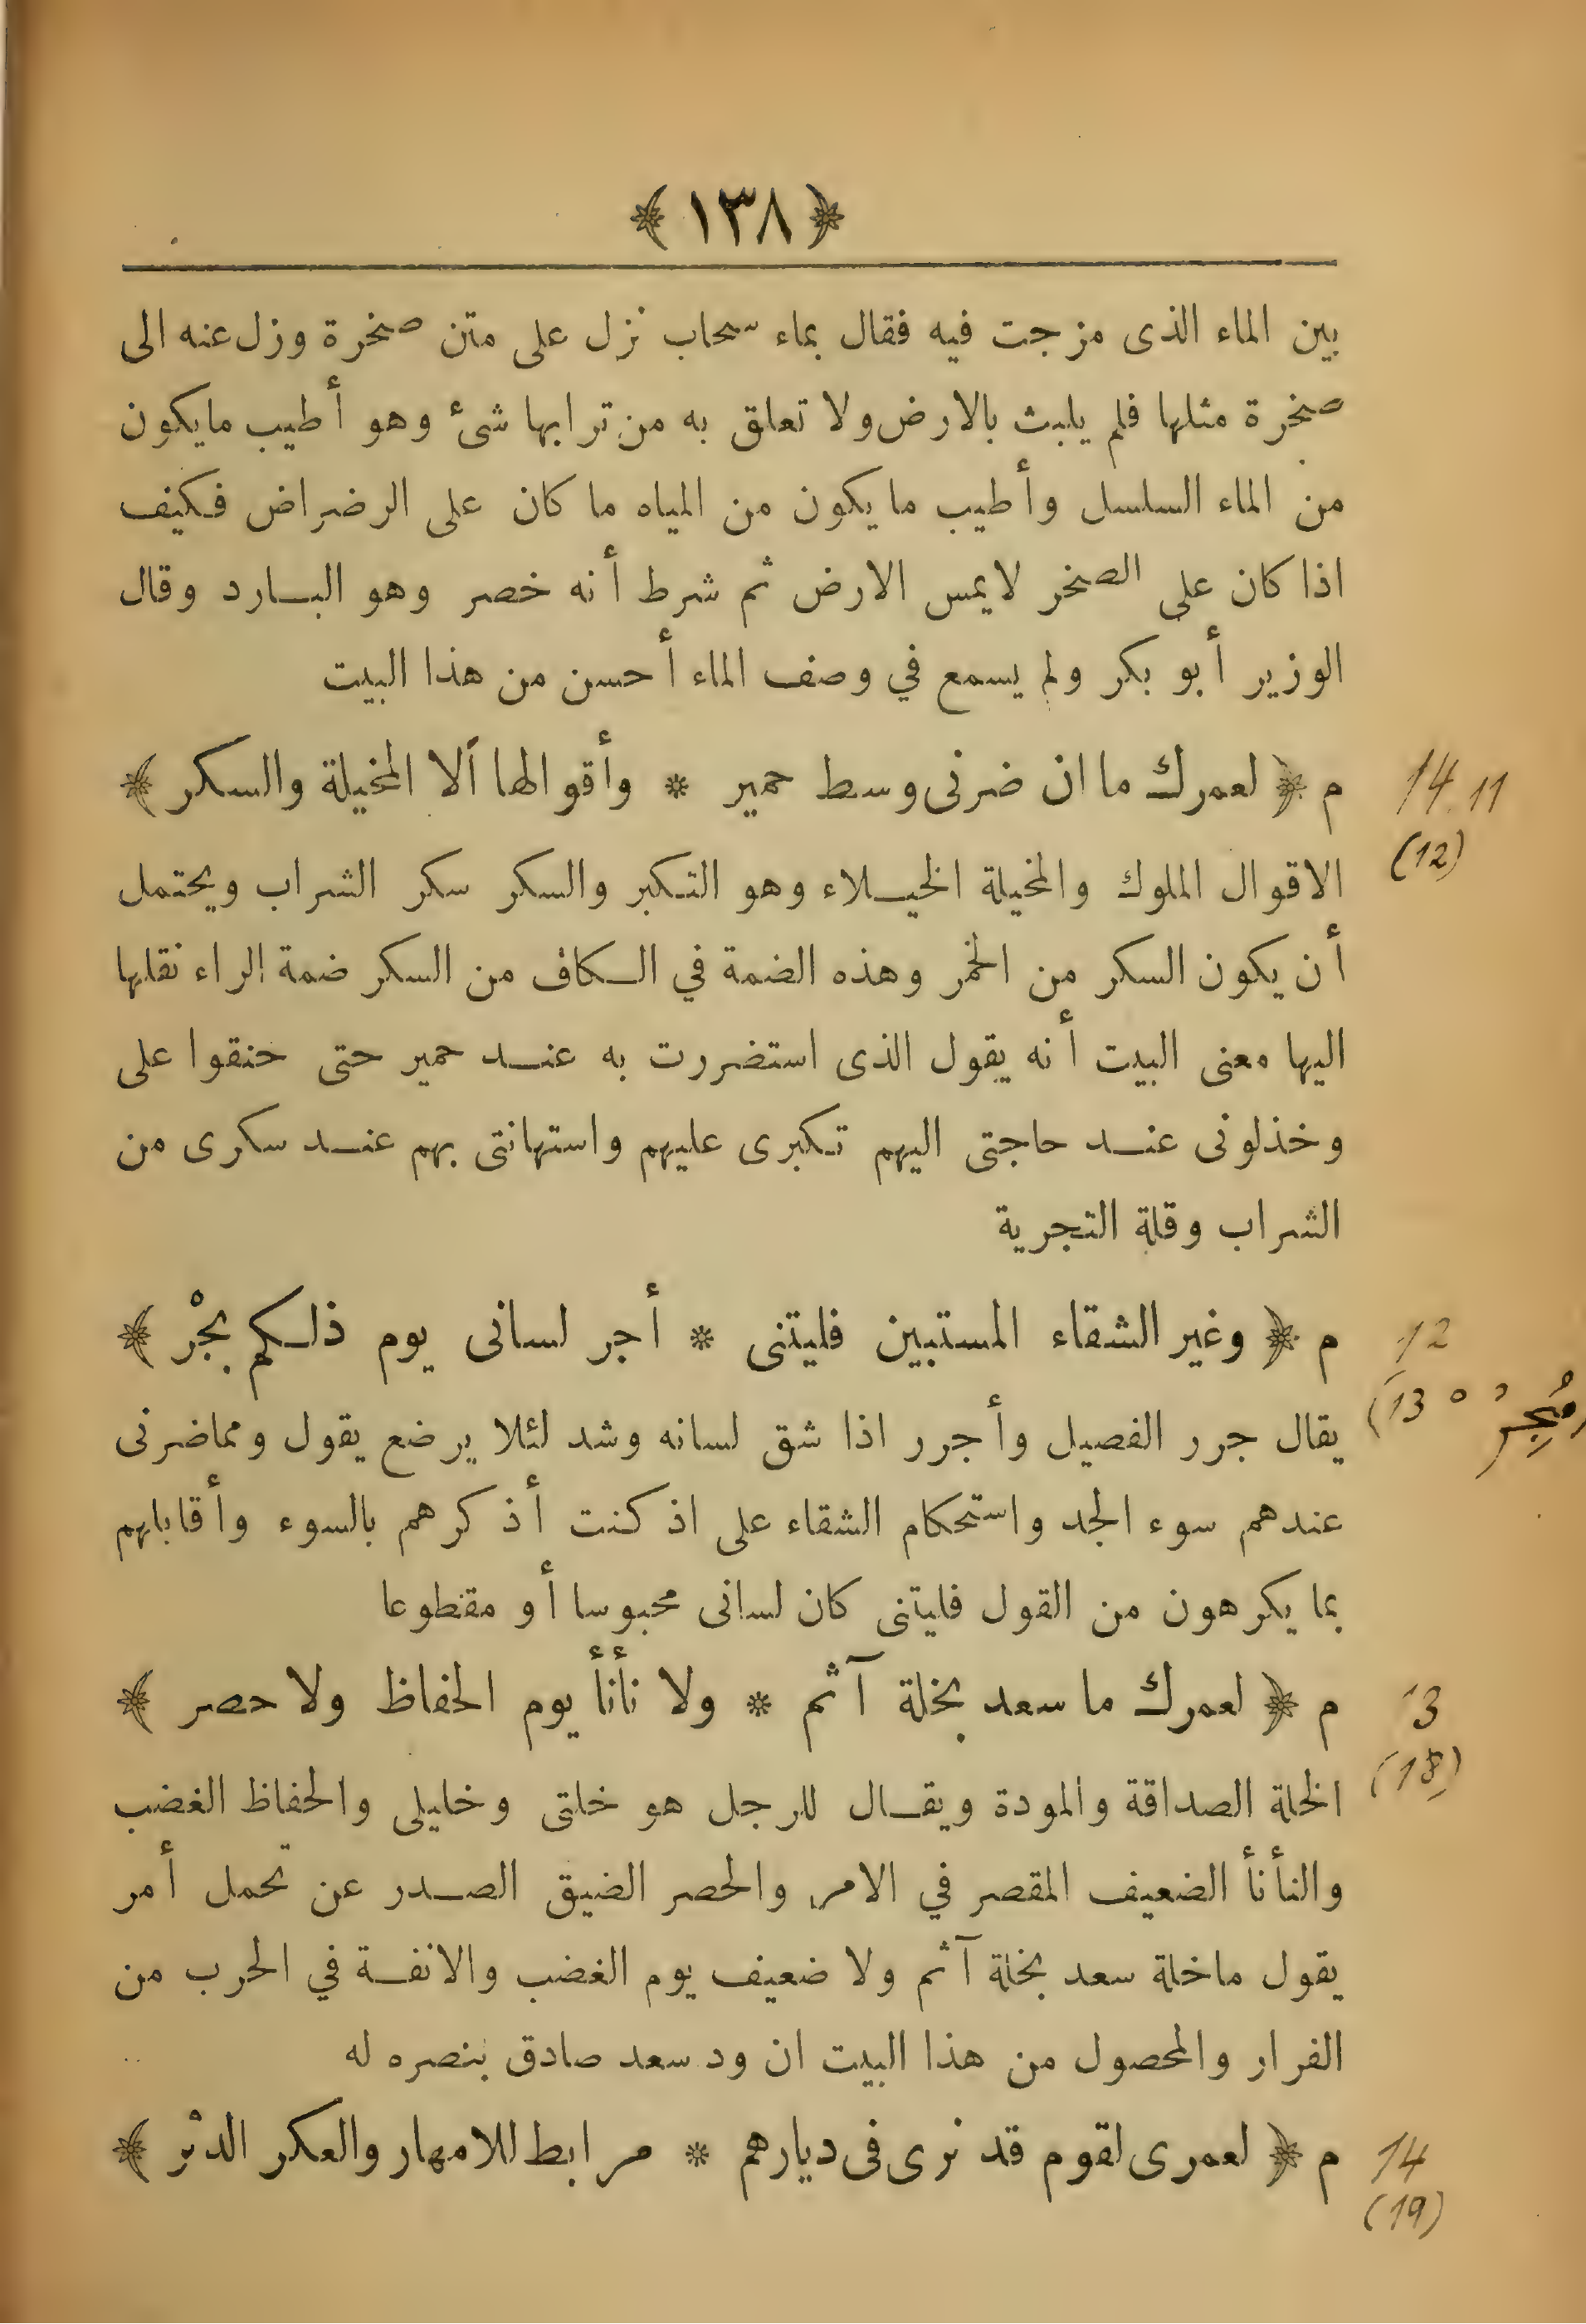 ﴿ ١٣٨ ﴾
بين الماء الذى مزجت فيه فقال بماء سحاب نزل على متن صخرة وزل عنه الى
صخرة مثلها فلم يلبث بالارض ولا تعلق به من ترابها شئ وهو أطيب مايكون
من الماء السلسل وأطيب ما يكون من المياه ما كان على الرضراض فكيف
اذا كان على الصخر لايمس الارض ثم شرط أنه خصر وهو البارد وقال
الوزير أبو بكر ولم يسمع في وصف الماء أحسن من هذا البيت
م ﴿ لعمرك ما ان ضرنى وسط حمير * وأقوالها ألا المخيلة والسكر ﴾
14. 11
(12)
الاقوال الملوك والمخيلة الخيلاء وهو التكبر والسكر سكر الشراب ويحتمل
أن يكون السكر من الخمر وهذه الضمة في الكاف من السكر ضمة الراء نقلها
اليها معنى البيت أنه يقول الذى استضررت به عند حمير حتى حنقوا على
وخذلونى عند حاجتى اليهم تكبرى عليهم واستهانتى بهم عند سكرى من
الشراب وقلة التجرية
م ﴿ وغير الشقاء المستبين فليتنى * أجر لسانى يوم ذلكم بجْر ﴾
12
(13
مُجِرْ
يقال جرر الفصيل وأجرر اذا شق لسانه وشد لئلا يرضع يقول ومماضرنى
عندهم سوء الجد واستحكام الشقاء على اذ كنت أذكرهم بالسوء وأقابلهم
بما يكرهون من القول فليتنى كان لسانى محبوسا أو مقطوعا
م ﴿ لعمرك ما سعد بخلة آثم * ولا نأنأ يوم الحفاظ ولا حصر ﴾
13
(18)
الخلة الصداقة والمودة ويقال للرجل هو خلتى وخليلى والحفاظ الغضب
والنأنأ الضعيف المقصر في الامر والحصر الضيق الصدر عن تحمل أمر
يقول ماخلة سعد بخلة آثم ولا ضعيف يوم الغضب والانفة في الحرب من
الفرار والمحصول من هذا البيت ان ود سعد صادق بنصره له
م ﴿ لعمرى لقوم قد نرى فى ديارهم * مرابط للامهار والعكر الدثْر ﴾
14
(19)